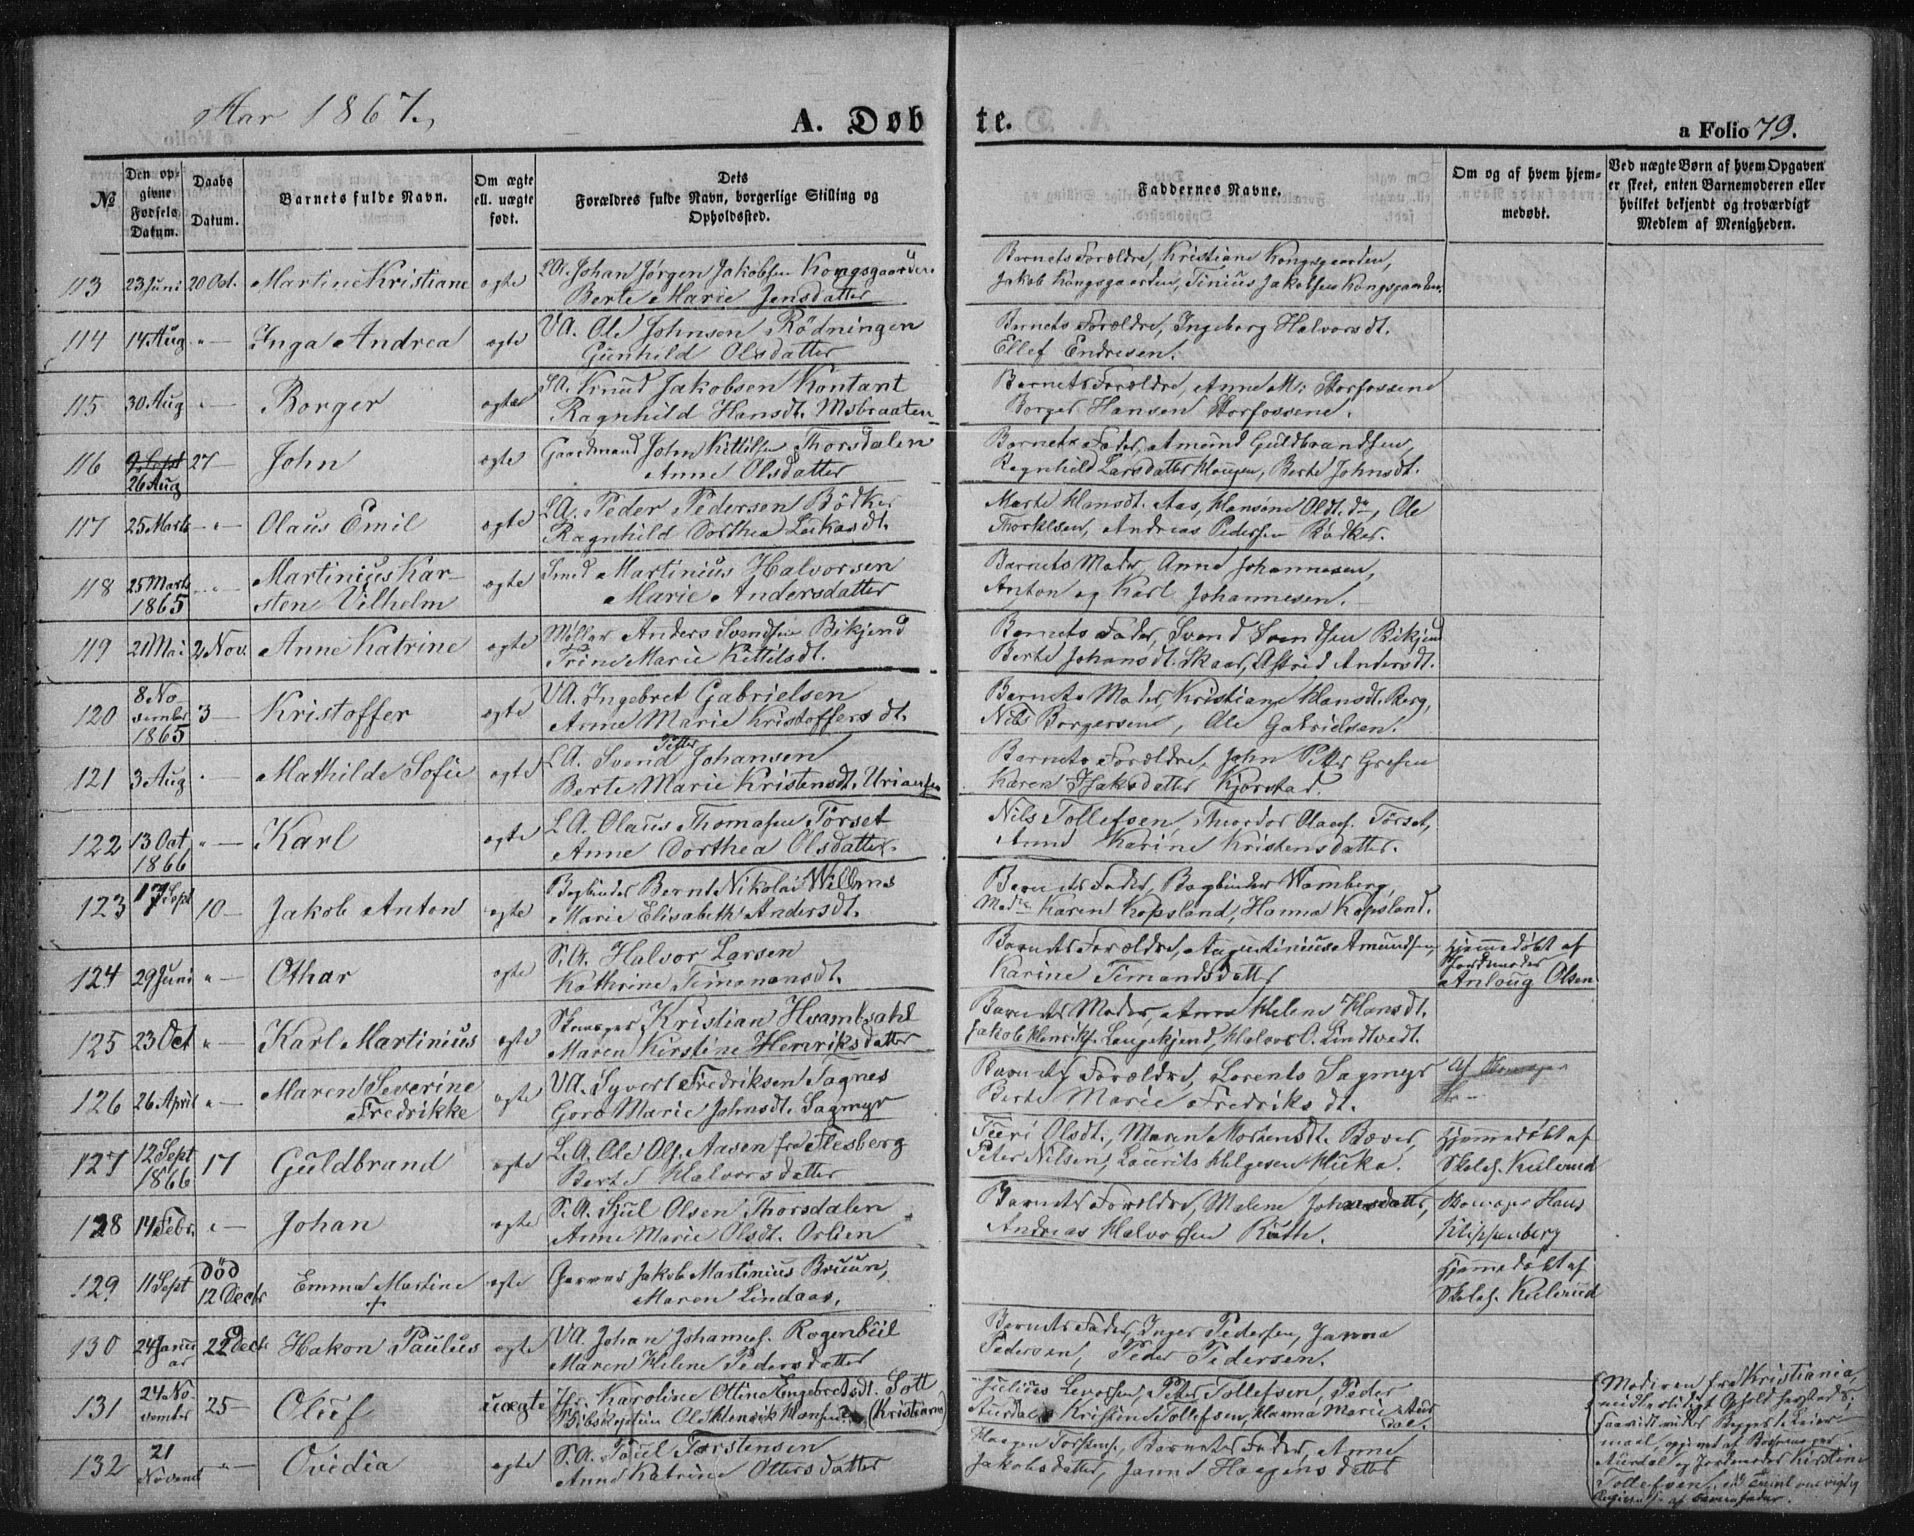 Aar 1867.
A. Døbte.
a Folio 79.
№
Den opgivne Fødsels Datum.
Daabs Datum.
Barnets fulde Navn.
Om ægte ell. uægte født.
Dets Forældres fulde Navn, borgerlige Stilling og Opholdssted.
Faddernes Navne.
Om og af hvem hjemmedøbt.
Ved uægte Børn af hvem Opgaven er skeet, enten Barnemoderen eller hvilket bekjendt og troværdigt Medlem af Menigheden.
113 23 Juni 20 Oct. Martine Kristiane ægte LA. Johan Jørgen Jakobsen Kongsgaarden
Berte Marie Jensdatter
Barnets Forældre, Kristiane Kongsgaarden,
Jakob Kongsgaarden, Tinius Jakobsen Kongsgaarden.
114 14 Aug " — Inga Andrea ægte VA. Ole Johnsen Rödningen
Gunhild Olsdatter
Barnets Forældre, Ingeborg Halvorsdt.
Ellef Endresen.
115 30 Aug " — Borger ægte SA. Knud Jakobsen Kontant
Ragnhild Hansdt. Mobraaten
Barnets Forældre, Anne M: Storfossene
Borger Hansen Storfossene.
116 9 Sept 26 Aug 27 — John ægte Gaardmand John Kittilsen Thorsdalen
Anne Olsdatter
Barnets Fader, Amund Guldbrandsen,
Ragnhild Larsdatter Haugen, Berte Johnsdt.
117 25 Marts — " — Olaus Emil ægte LA. Peder Pedersen Bödker
Ragnhild Dorthea Lukasdt.
Marte Hansdt. Aas, Hansine Olsdt. do, Ole
Thorklsen, Andreas Pedersen Bödker.
118 25 Marts 1865 — " — Martinius Karsten Vilhelm ægte Smed Martinius Halvorsen
Marie Andersdatter
Barnets Moder, Anne Johannesen,
Anton og Karl Johannesen.
119 21 Mai 2 Nov. Anne Katrine ægte Möller Anders Svendsen Bikjend
Trine Marie Kittilsdt.
Barnets Fader, Svend Svendsen Bikjend
Berte Johansdt. Skaar, Astrid Andersdt.
120 8 November 1865 3 — Kristoffer ægte VA. Ingebret Gabrielsen
Anne Marie Kristoffersdt.
Barnets Moder, Kristiane Hansdt. Berg,
Nils Borgersen, Ole Gabrielsen.
121 3 Aug " — Mathilde Sofie ægte LA. Svend Petter Johansen
Berte Marie Kristensdt. Uriansen
Barnets Forældre, John Peter Grefsen
Karen Isaksdatter Kjørstad.
122 13 Oct, 1866 " — Karl ægte LA. Olaus Thomasen Törset
Anne Dorthea Olsdatter.
Nils Tollefsen, Theodor Olaus. Törset,
Anne Karine Kristensdatter.
123 17 Sept 10 — Jakob Anton ægte Bogbinder Bernt Nikolai Willums
Marie Elisabeth Andersdt.
Barnets Fader, Bogbinder Wamberg,
Madme Karen Kopsland, Hanna Kopsland.
124 29 Juni " — Othar ægte S.A. Halvor Larsen
Kathrine Timanensdt.
Barnets Forældre, Augustinius Amundsen,
Karine Timandsdatter
Hjemmedöbt af
Jordmoder
Anloug Olsen
125 23 Oct " — Karl Martinius ægte Skomager Kristian Hvambsahl
Maren Kirstine Henriksdatter
Barnets Moder, Anne Helene Hansdt.
Jakob Henriks. Langekjend, Halvor O. Lindtvedt.
126 26 April " — Maren Severine Fredrikke ægte VA. Syvert Fredriksen Sagnes
Goro Marie Johnsdt. Sagmyr
Barnets Forældre, Lorents Sagmyr
Berte Marie Fredriksdt.
127 12 Sept 1866 17 Guldbrand ægte L.A. Ole Ols. Aasen fra Flesberg
Berte Halvorsdatter
Turi Olsdt., Maren Mortensdt. Bæver,
Peter Nilsen, Laurits Helgesen Huka.
Hjemmedöbt af
Skolel. Kulerud
128 14 Febr. " — Johan ægte S.A. Kjul Olsen Thorsdalen
Anne Marie Olsdt. Orlien
Barnets Forældre, Malene Johansdatter,
Andreas Halvorsen Ruth.
Skomager Hans
Klippenberg
129 11 Sept död 12 Decbr Emma Martine + ægte Garver Jakob Martinius Bruun,
Maren Lindaas.
Hjemmedöbt af
Skolel. Kulerud
130 24 Januar 22 Decbr Hakon Paulus ægte VA. Johan Johannes. Rogenbüil
Maren Helene Pedersdatter
Barnets Fader, Inger Pedersen, Janna
Pedersen, Peder Pedersen.
131 24 November 25 — Oluf uægte Karoline Ottine Engebretsdt. Sott
Ole Henrik Hansen (Kristiania)
Julius Levorsen, Peter Tollefsen, Peder
Aurdal, Kristine Tollefsen, Hanna Marie Aurdal.
Moderen fra Kristiania,
Kirstine
Tollefsen
132 21 Novemb " — Ovidia ægte S.A. Poul Torstensen
Anne Katrine Ottersdatter
Haagen Torstens., Barnets Fader, Anne
Jakobsdatter, Janne Haagensdatter